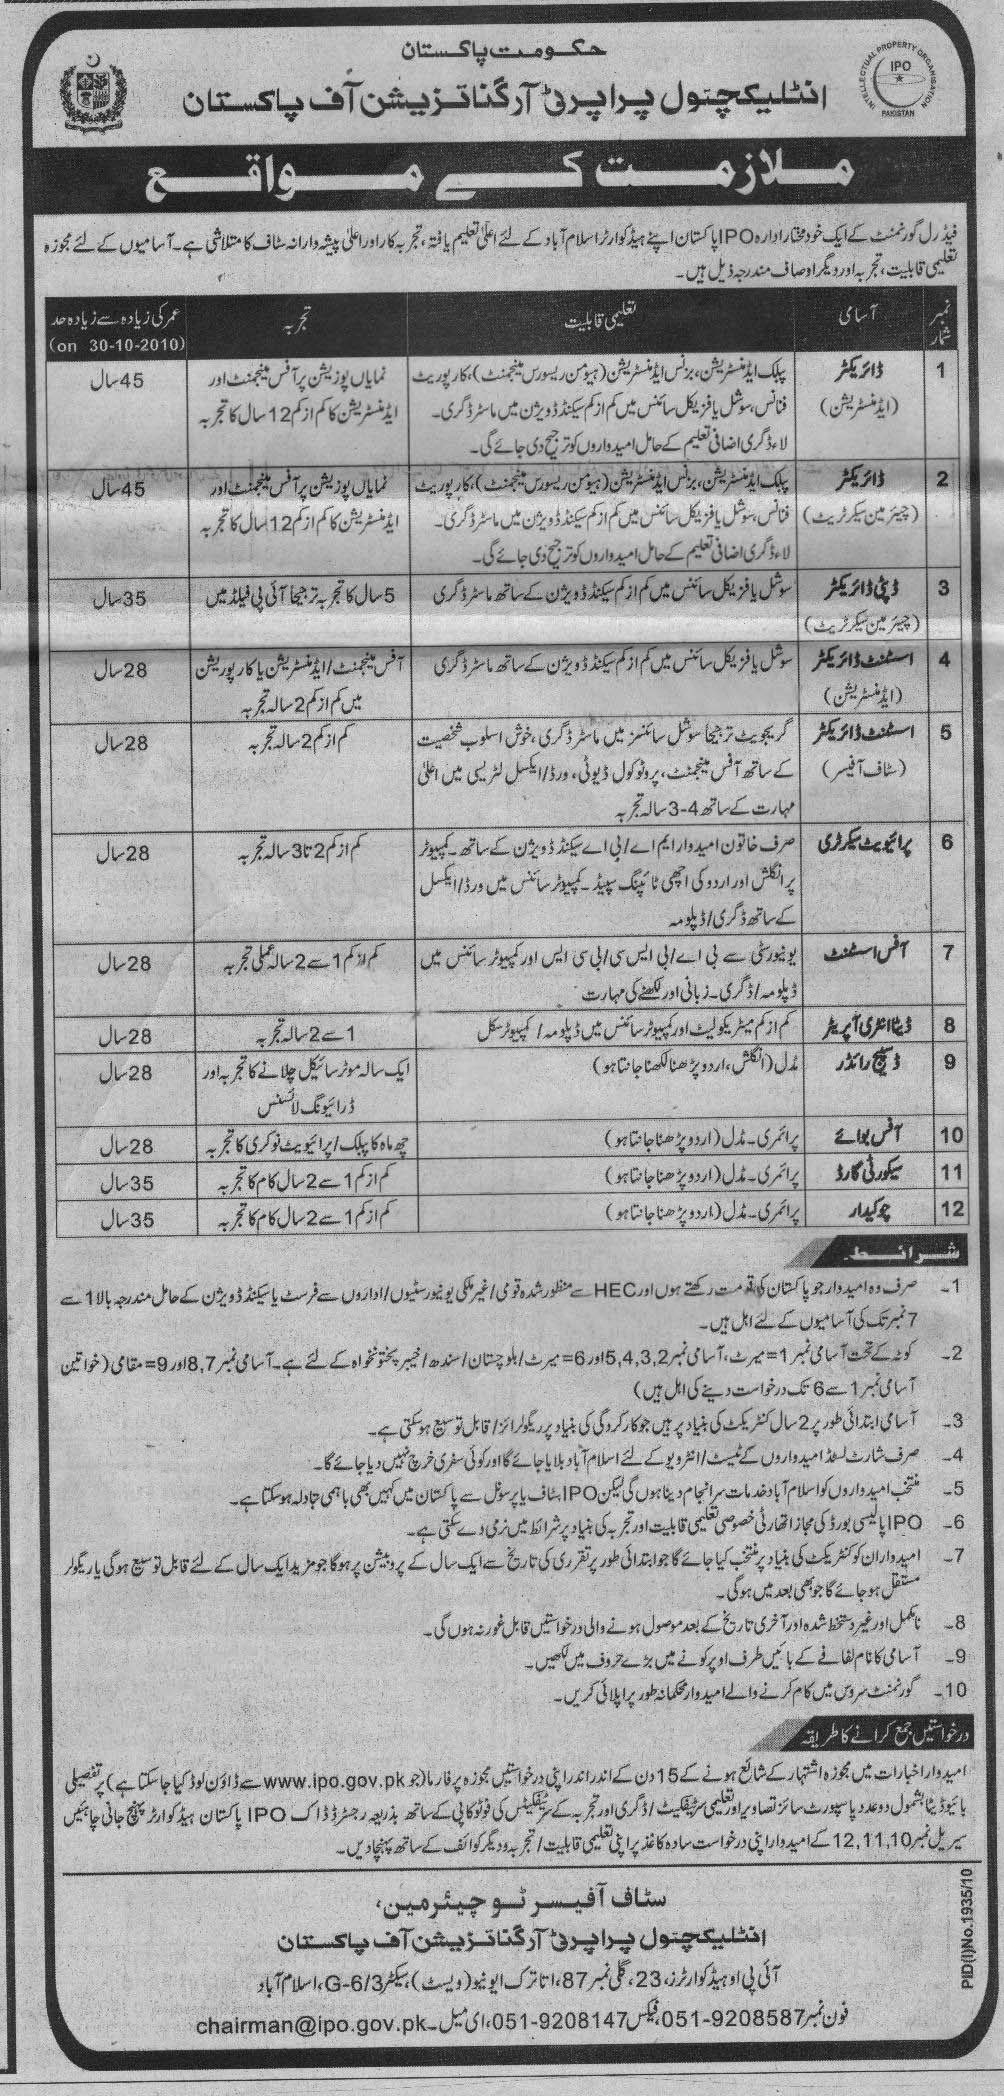 حکومت پاکستان
انٹلیکچئول پراپرٹی آرگنائزیشن آف پاکستان
INTELLECTUAL PROPERTY ORGANISATION
IPO
PAKISTAN
ملازمت کے مواقع
فیڈرل گورنمنٹ کے ایک خودمختار ادارہ IPO پاکستان اپنے ہیڈکوارٹر اسلام آباد کے لئے اعلیٰ تعلیم یافتہ، تجربہ کار اور اعلیٰ پیشہ وارانہ سٹاف کا متلاشی ہے۔ آسامیوں کے لئے مجوزہ
تعلیمی قابلیت، تجربہ اور دیگر اوصاف مندرجہ ذیل ہیں۔
نمبر شمار آسامی تعلیمی قابلیت تجربہ عمر کی زیادہ سے زیادہ حد
(on 30-10-2010)
1 ڈائریکٹر پبلک ایڈمنسٹریشن، بزنس ایڈمنسٹریشن (ہیومن ریسورس مینجمنٹ)، کارپوریٹ نمایاں پوزیشن پر آفس مینجمنٹ اور 45سال
(ایڈمنسٹریشن) فنانس، سوشل یا فزیکل سائنس میں کم از کم سیکنڈ ڈویژن میں ماسٹر ڈگری۔ ایڈمنسٹریشن کا کم از کم 12 سال کا تجربہ
لاء ڈگری اضافی تعلیم کے حامل امیدواروں کو ترجیح دی جائے گی۔
2 ڈائریکٹر پبلک ایڈمنسٹریشن، بزنس ایڈمنسٹریشن (ہیومن ریسورس مینجمنٹ)، کارپوریٹ نمایاں پوزیشن پر آفس مینجمنٹ اور 45سال
(چیئرمین سیکرٹریٹ) فنانس، سوشل یا فزیکل سائنس میں کم از کم سیکنڈ ڈویژن میں ماسٹر ڈگری۔ ایڈمنسٹریشن کا کم از کم 12 سال کا تجربہ
لاء ڈگری اضافی تعلیم کے حامل امیدواروں کو ترجیح دی جائے گی۔
3 ڈپٹی ڈائریکٹر سوشل یا فزیکل سائنس میں کم از کم سیکنڈ ڈویژن کے ساتھ ماسٹر ڈگری 5 سال کا تجربہ ترجیحاً آئی پی فیلڈ میں 35سال
(چیئرمین سیکرٹریٹ)
4 اسسٹنٹ ڈائریکٹر سوشل یا فزیکل سائنس میں کم از کم سیکنڈ ڈویژن کے ساتھ ماسٹر ڈگری آفس مینجمنٹ/ایڈمنسٹریشن یا کارپوریشن 28سال
(ایڈمنسٹریشن) میں کم از کم 2 سالہ تجربہ
5 اسسٹنٹ ڈائریکٹر گریجویٹ ترجیحاً سوشل سائنسز میں ماسٹر ڈگری، خوش اسلوب شخصیت کم از کم 2 سالہ تجربہ 28سال
(سٹاف آفیسر) کے ساتھ آفس مینجمنٹ، پروٹوکول ڈیوٹی، ورڈ/ایکسل لٹریسی میں اعلیٰ
مہارت کے ساتھ 4-3 سالہ تجربہ
6 پرائیویٹ سیکرٹری صرف خاتون امیدوار ایم اے/بی اے سیکنڈ ڈویژن کے ساتھ۔ کمپیوٹر کم از کم 2 تا 3 سالہ تجربہ 28سال
پر انگلش اور اردو کی اچھی ٹائپنگ سپیڈ۔ کمپیوٹر سائنس میں ورڈ/ایکسل
کے ساتھ ڈگری/ڈپلومہ
7 آفس اسسٹنٹ یونیورسٹی سے بی اے/بی ایس سی/بی سی ایس اور کمپیوٹر سائنس میں کم از کم 1 سے 2 سالہ عملی تجربہ 28سال
ڈپلومہ/ڈگری۔ زبانی اور لکھنے کی مہارت
8 ڈیٹا انٹری آپریٹر کم از کم میٹریکولیٹ اور کمپیوٹر سائنس میں ڈپلومہ/کمپیوٹر سکل 1 سے 2 سالہ تجربہ 28سال
9 ڈسپیچ رائڈر مڈل (انگلش، اردو پڑھنا لکھنا جانتا ہو) ایک سالہ موٹر سائیکل چلانے کا تجربہ اور 28سال
ڈرائیونگ لائسنس
10 آفس بوائے پرائمری۔ مڈل (اردو پڑھنا جانتا ہو) چھ ماہ کا پبلک/پرائیویٹ نوکری کا تجربہ 28سال
11 سیکورٹی گارڈ پرائمری۔ مڈل (اردو پڑھنا جانتا ہو) کم از کم 1 سے 2 سال کام کا تجربہ 35سال
12 چوکیدار پرائمری۔ مڈل (اردو پڑھنا جانتا ہو) کم از کم 1 سے 2 سال کام کا تجربہ 35سال
شرائط:۔
1۔ صرف وہ امیدوار جو پاکستان کی قومیت رکھتے ہوں اور HEC سے منظور شدہ قومی/غیر ملکی یونیورسٹیوں/اداروں سے فرسٹ یا سیکنڈ ڈویژن کے حامل مندرجہ بالا 1 سے
7 نمبر تک کی آسامیوں کے لئے اہل ہیں۔
2۔ کوٹہ کے تحت آسامی نمبر 1=میرٹ، آسامی نمبر 5,4,3,2 اور 6=میرٹ/بلوچستان/سندھ/خیبر پختونخواہ کے لئے ہے۔ آسامی نمبر 8,7 اور 9=مقامی (خواتین
آسامی نمبر 1 سے 6 تک درخواست دینے کی اہل ہیں)
3۔ آسامی ابتدائی طور پر 2 سال کنٹریکٹ کی بنیاد پر ہیں جو کارکردگی کی بنیاد پر ریگولرائز/قابل توسیع ہو سکتی ہے۔
4۔ صرف شارٹ لسٹڈ امیدواروں کے ٹیسٹ/انٹرویو کے لئے اسلام آباد بلایا جائے گا اور کوئی سفری خرچ نہیں دیا جائے گا۔
5۔ منتخب امیدواروں کو اسلام آباد خدمات سرانجام دینا ہوں گی لیکن IPO سٹاف یا پرسونل سے پاکستان میں کہیں بھی باہمی تبادلہ ہو سکتا ہے۔
6۔ IPO پالیسی بورڈ کی مجاز اتھارٹی خصوصی تعلیمی قابلیت اور تجربہ کی بنیاد پر شرائط میں نرمی دے سکتی ہے۔
7۔ امیدواران کو کنٹریکٹ کی بنیاد پر منتخب کیا جائے گا جو ابتدائی طور پر تقرری کی تاریخ سے ایک سال کے پروبیشن پر ہوگا جو مزید ایک سال کے لئے قابل توسیع ہوگی یا ریگولر
مستقل ہو جائے گا جو بھی بعد میں ہوگی۔
8۔ نامکمل اور غیر دستخط شدہ اور آخری تاریخ کے بعد موصول ہونے والی درخواستیں قابل غور نہ ہوں گی۔
9۔ آسامی کا نام لفافے کے بائیں طرف اوپر کونے میں بڑے حروف میں لکھیں۔
10۔ گورنمنٹ سروس میں کام کرنے والے امیدوار محکمانہ طور پر اپلائی کریں۔
درخواستیں جمع کرانے کا طریقہ
امیدوار اخبارات میں مجوزہ اشتہار کے شائع ہونے کے 15 دن کے اندر اندر اپنی درخواستیں مجوزہ پرفارما (جو www.ipo.gov.pk سے ڈاؤن لوڈ کیا جا سکتا ہے) پر تفصیلی
بائیوڈیٹا بشمول دو عدد پاسپورٹ سائز تصاویر اور تعلیمی سرٹیفکیٹ/ڈگری اور تجربہ کے سرٹیفکیٹس کی فوٹوکاپی کے ساتھ بذریعہ رجسٹرڈ ڈاک IPO پاکستان ہیڈکوارٹر پہنچ جانی چاہئیں
سیریل نمبر 12,11,10 کے امیدوار اپنی درخواست سادہ کاغذ پر اپنی تعلیمی قابلیت/تجربہ و دیگر کوائف کے ساتھ پہنچا دیں۔
سٹاف آفیسر ٹو چیئرمین،
انٹلیکچئول پراپرٹی آرگنائزیشن آف پاکستان
آئی پی او ہیڈکوارٹرز، 23، گلی نمبر 87، اتاترک ایونیو (ویسٹ)، سیکٹر G-6/3، اسلام آباد
فون نمبر 051-9208587، فیکس 051-9208147، ای میل۔ chairman@ipo.gov.pk
PID(I)No.1935/10